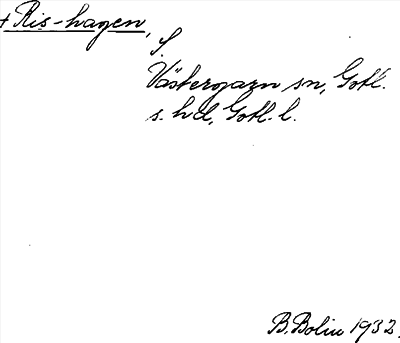 + Ris-hagen,
S.
Västergarn sn, Gotl.
s. hd, Gotl. l.
B. Bolin 1932.